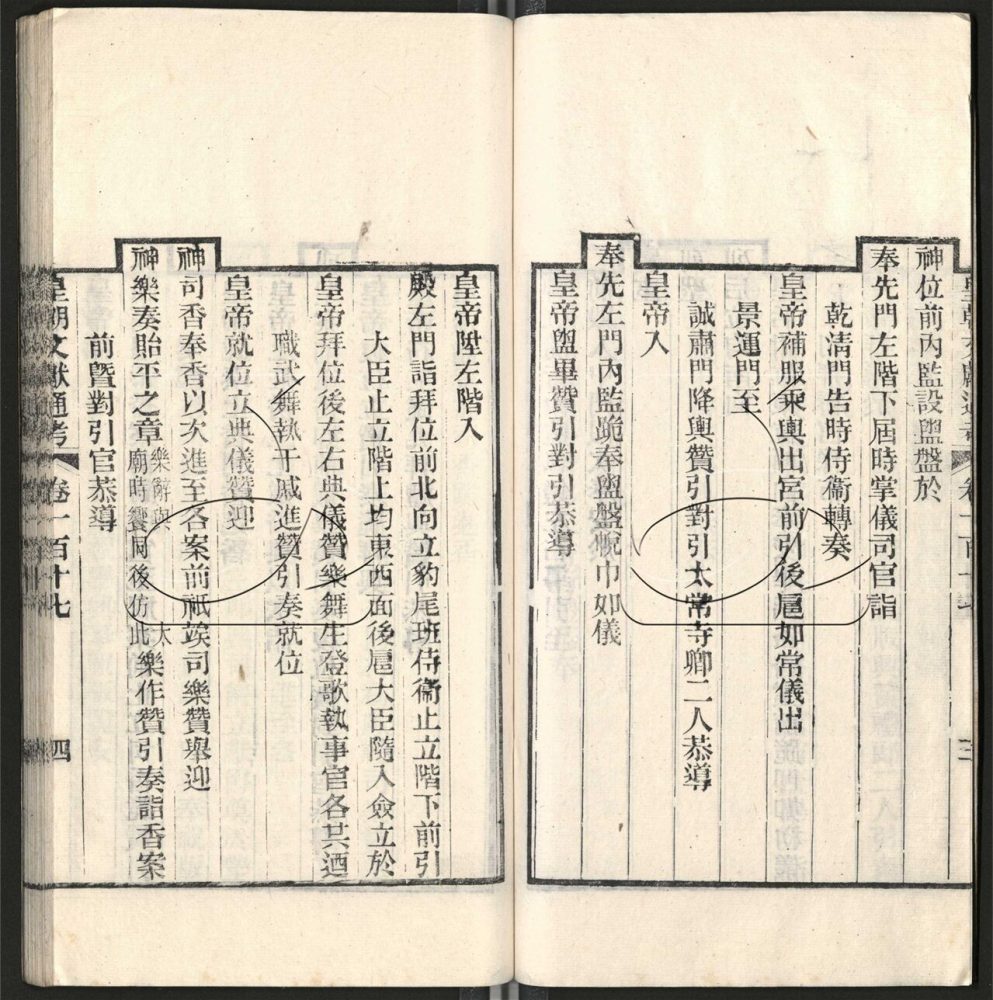 皇朝文獻通考 卷一百十七 三
神位前內監設盥盤於
奉先門左階下屆時掌儀司官詣
乾清門告時侍衞轉奏
皇帝補服乘輿出宮前引後扈如常儀出
景運門至
誠肅門降輿贊引對引太常寺卿二人恭導
皇帝入
奉先左門內監跪奉盥盤帨巾如儀
皇帝盥畢贊引對引恭導
皇帝陞左階入
殿左門詣拜位前北向立豹尾班侍衞止立階下前引
大臣止立階上均東西面後扈大臣隨入僉立於
皇帝拜位後左右典儀贊樂舞生登歌執事官各共迺
職武舞執干戚進贊引奏就位
皇帝就位立典儀贊迎
神司香奉香以次進至各案前祇竢司樂贊舉迎
神樂奏貽平之章樂辭與太廟時饗同後仿此樂作贊引奏詣香案
前曁對引官恭導
皇朝文獻通考 卷一百十七 四